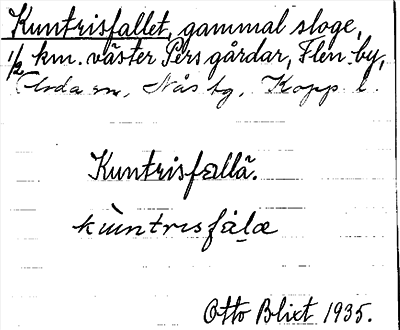 Kuntrisfallet, gammal sloge,
1/2 km. väster Pers gårdar, Flen by,
Floda sn, Nås tg, Kopp l.
Kuntrisfallä.
kùntrisfàlæ
Otto Blixt 1935.